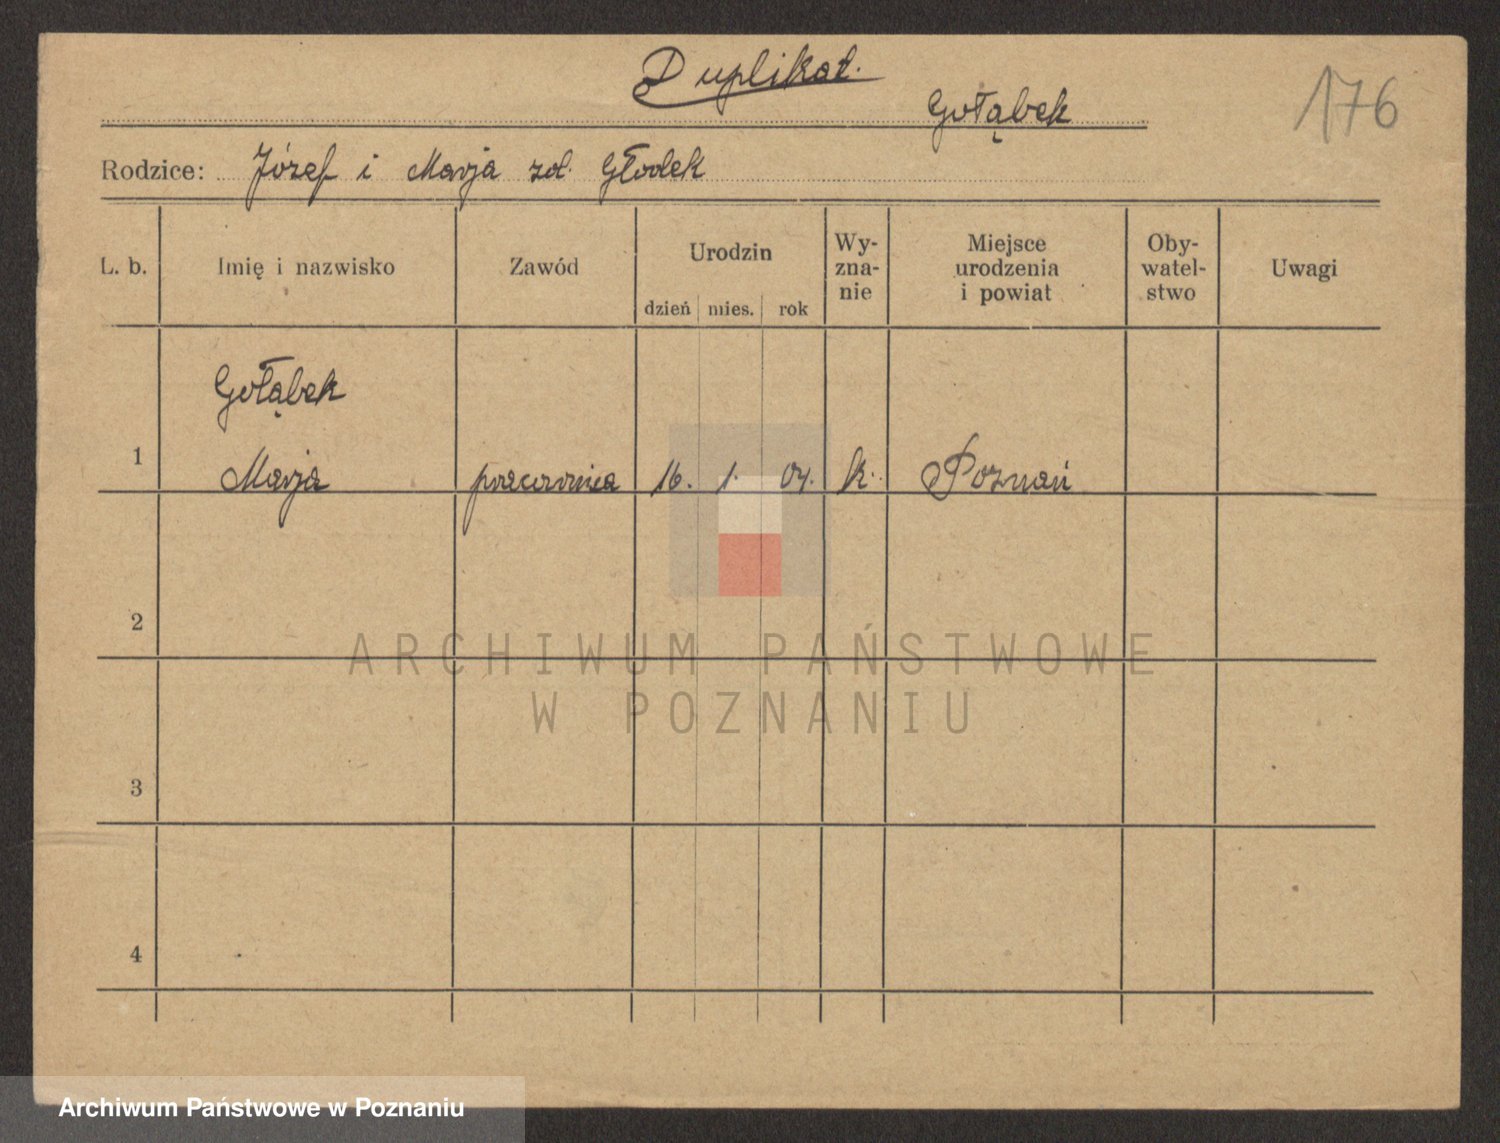 Duplikat.
Gołąbek
176
Rodzice: Józef i Marja zd. Głodek
L. b.
Imię i nazwisko
Zawód
Urodzin
dzień
mies.
rok
Wy-
zna-
nie
Miejsce
urodzenia
i powiat
Oby-
watel-
stwo
Uwagi
Gołąbek
1 Marja pracownica 16. 1. 04. k. Poznań
2
3
4
ARCHIWUM PAŃSTWOWE
W POZNANIU
Archiwum Państwowe w Poznaniu